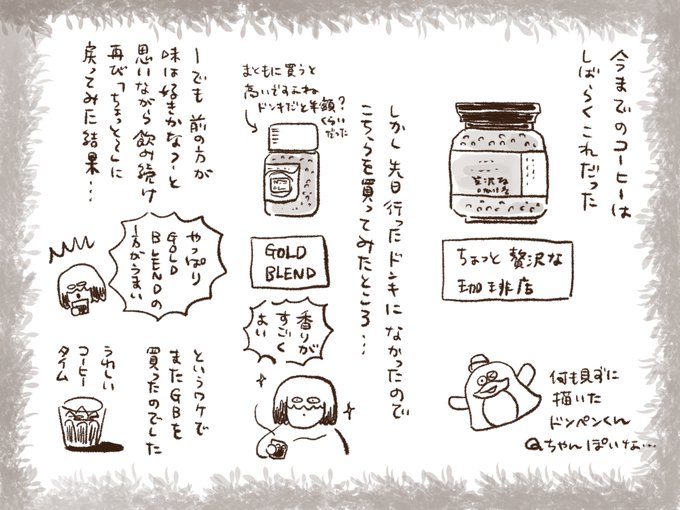 今までのコーヒーは
しばらくこれだった
贅沢な
珈琲店
ちょっと贅沢な
珈琲店
何も見ずに
描いた
ドンペンくん
Qちゃんぽいな…
しかし先日行ったドンキになかったので
こちらを買ってみたところ…
まともに買うと
高いですよね
ドンキだと半額?
くらい
だった
GOLD
BLEND
香りが
すごく
よい
ーでも 前の方が
味は好きかなつーと
思いながら飲み続け
再び「ちょっと〜」に
戻ってみた結果…
やっぱり
GOLD
BLENDの
方がうまい
というワケで
またGBを
買ったのでした
うれしい
コーヒー
タイム